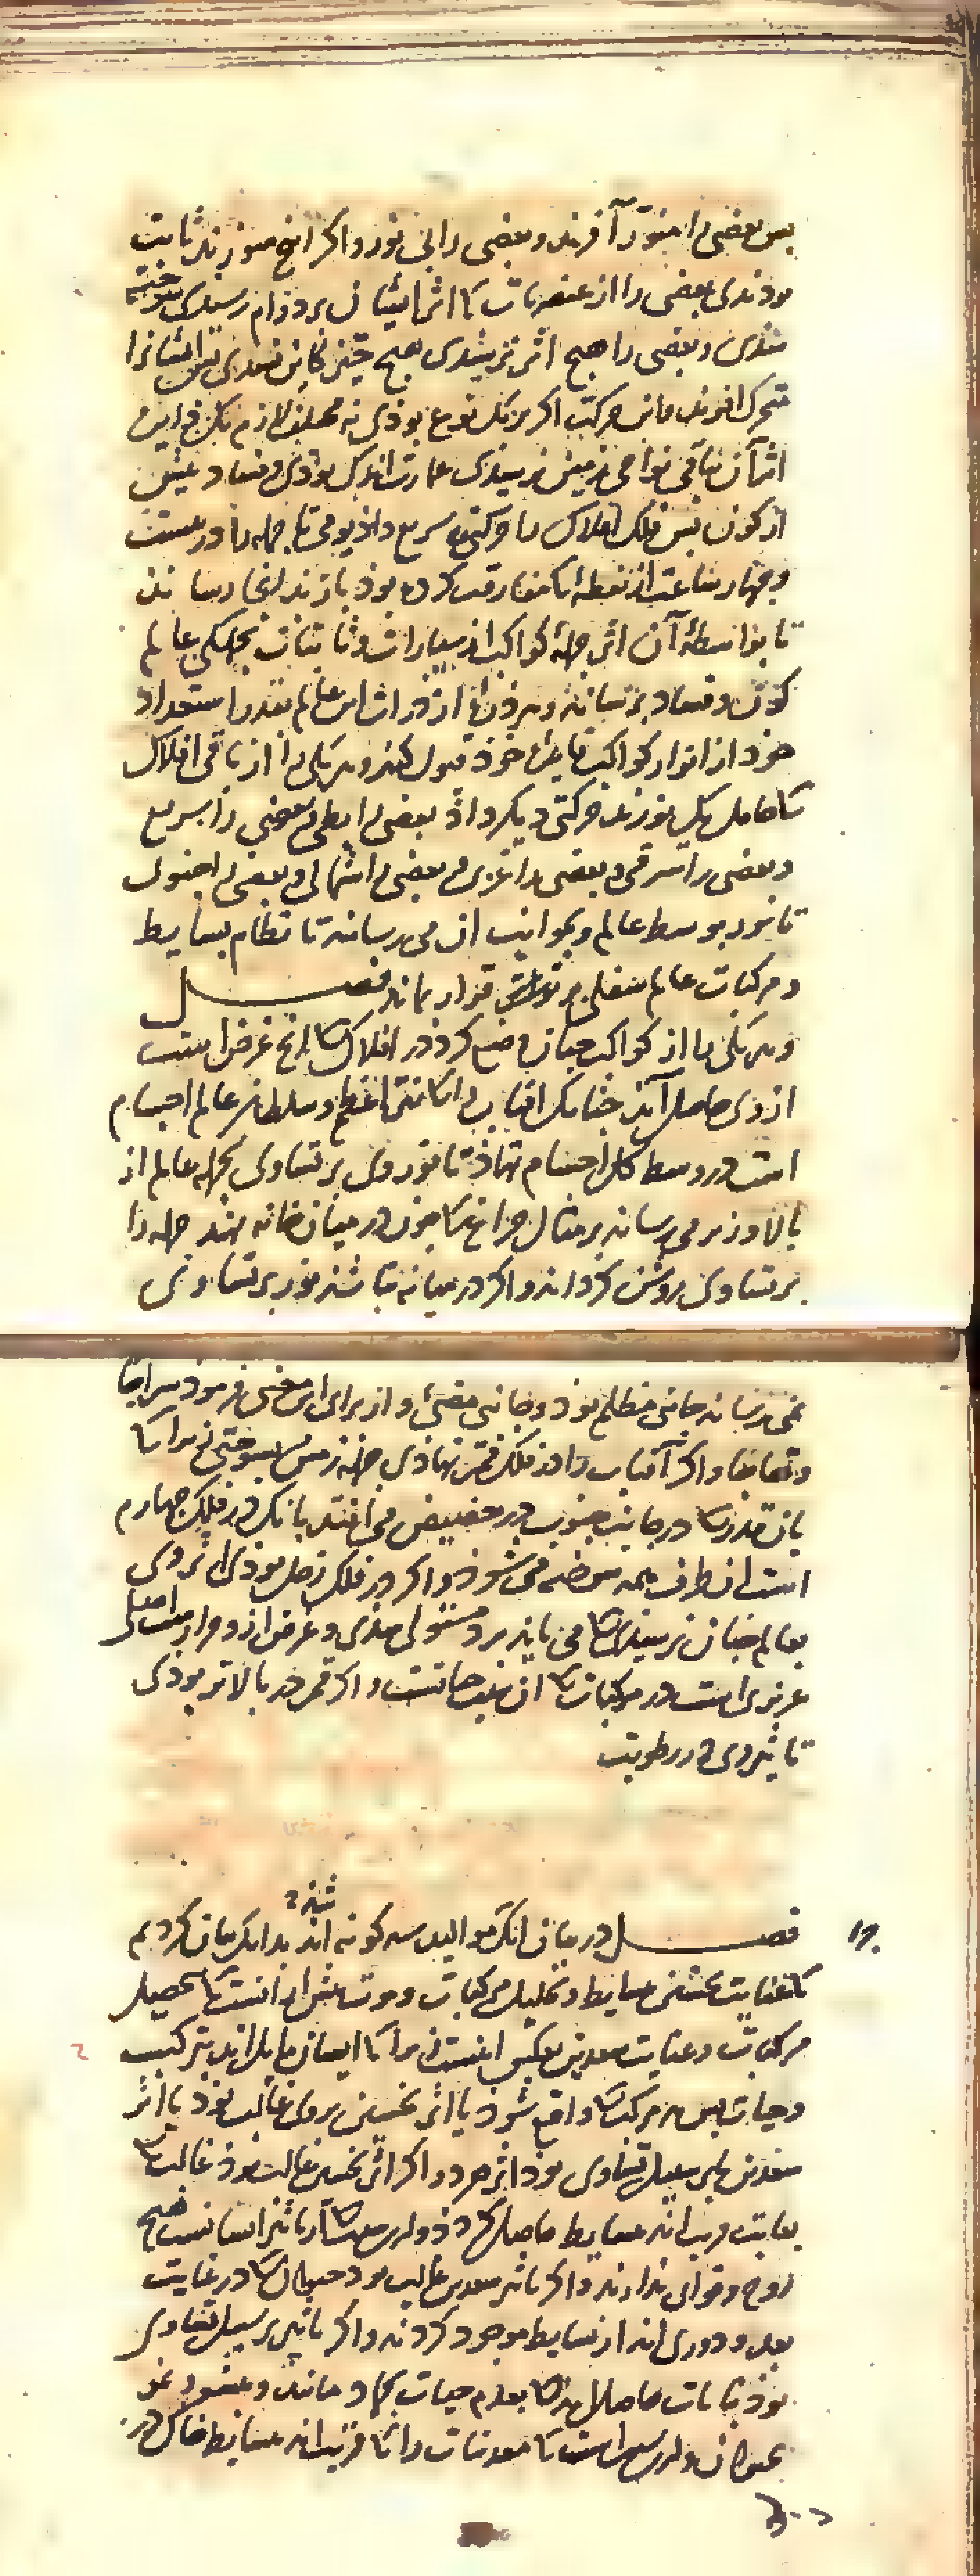 پس بعضی را منور آفرید و بعضی را بی نور و اگر انچ منورند ثابت
بودندی بعضی را از عنصریات کا اثر ایشان بر دوام رسیدی سوخته
شدی و بعضی را هیچ اثر نرسیدی هیچ چیز کاین نشدی پس ایشانرا
متحرک آفرید و این حرکت اگر بر یک نوع بودی نه مختلف لازم
اثر آن بباقی نواحی زمین نرسیدی عمارت اندک بودی و فساد بیش
از کون پس فلک افلاک را حرکتی سریع داد یومی تا جمله را در بیست
و چهار ساعت از نقطه کا مفارقت کرده بود باز بدانجا رساند
تا بواسطه آن اثر جمله کواکب از سیارات و ثابتات بجملگی عالم
کون و فساد برساند و هر ذره از ذرات این عالم بقدر استعداد
خود از انوار کواکب تاثیر خود قبول کند و هر یکی را از باقی افلاک
کا حامل یک نورند حرکتی دیگر داد بعضی را بطی و بعضی را سریع
و بعضی را شرقی و بعضی را غربی و بعضی را شمالی و بعضی را جنوبی
تا نور بوسط عالم و بجوانب آن می رساند تا نظام بسایط
و مرکبات عالم سفلی بر قرار بماند فصل
و هر یکی را از کواکب چنان وضع کرد در افلاک کا انچ غرض است
از وی حاصل آید چنانک آفتاب را کا نیر اعظم و سلطان عالم اجسام
است در وسط کل اجسام نهاد تا نور وی بر تساوی بجمله عالم از
بالا و زیر می رساند بر مثال چراغ کا چون در میان خانه نهند جمله را
بر تساوی روشن گرداند و اگر در میانه نباشد نور بر تساوی
نمی رساند جانبی مظلم بود و جانبی مضئ و از برای این معنی فرمود سراجا
وهاجا و اگر آفتاب را در فلک قمر نهادی جمله زمین بسوختی زیرا کا
بان قدر کا در جانب جنوب در حضیض می افتد بانک در فلک چهارم
است آن طرف همه سوخته می شود و اگر در فلک زحل بودی اثر وی
بعالم چنان نرسیدی کا می باید برد مستولی شدی و غرض از وی حرارت اصلی
غریزی است در مرکبات کا آن سبب حیاتست و اگر قمر خود بالاتر بودی
تاثیر وی در رطوبت
۱۹ فصل در بیان انک موالید سه گونه اند بدانک بیان کردیم
کا عنایت بسایط و تحلیل مرکبات و موت کا تحصیل
مرکبات و عنایت سعدین بعکس اینست زیرا کا ایشان مایل اند بترکیب
و حیات پس هر مرکب کا واقع شود یا اثر نحسین بر وی غالب بود یا اثر
سعدین یا بر سبیل تساوی بود اثر هر دو اگر اثر نحسین غالب بود
بغایت قریب اند ببسایط حاصل گردد هیچ
روح و قوای ندارند و اگر تاثیر سعدین غالب بود حیوان کا در غایت
بعد و دوری اند از بسایط موجود گردند و اگر تاثیر بر سبیل تساوی
بود نبات حاصل آید کا بعدم حیات بجماد ماند و بنشو و نمو
بحیوان است کا معدنیات را کا قریب اند ببسایط خاک در